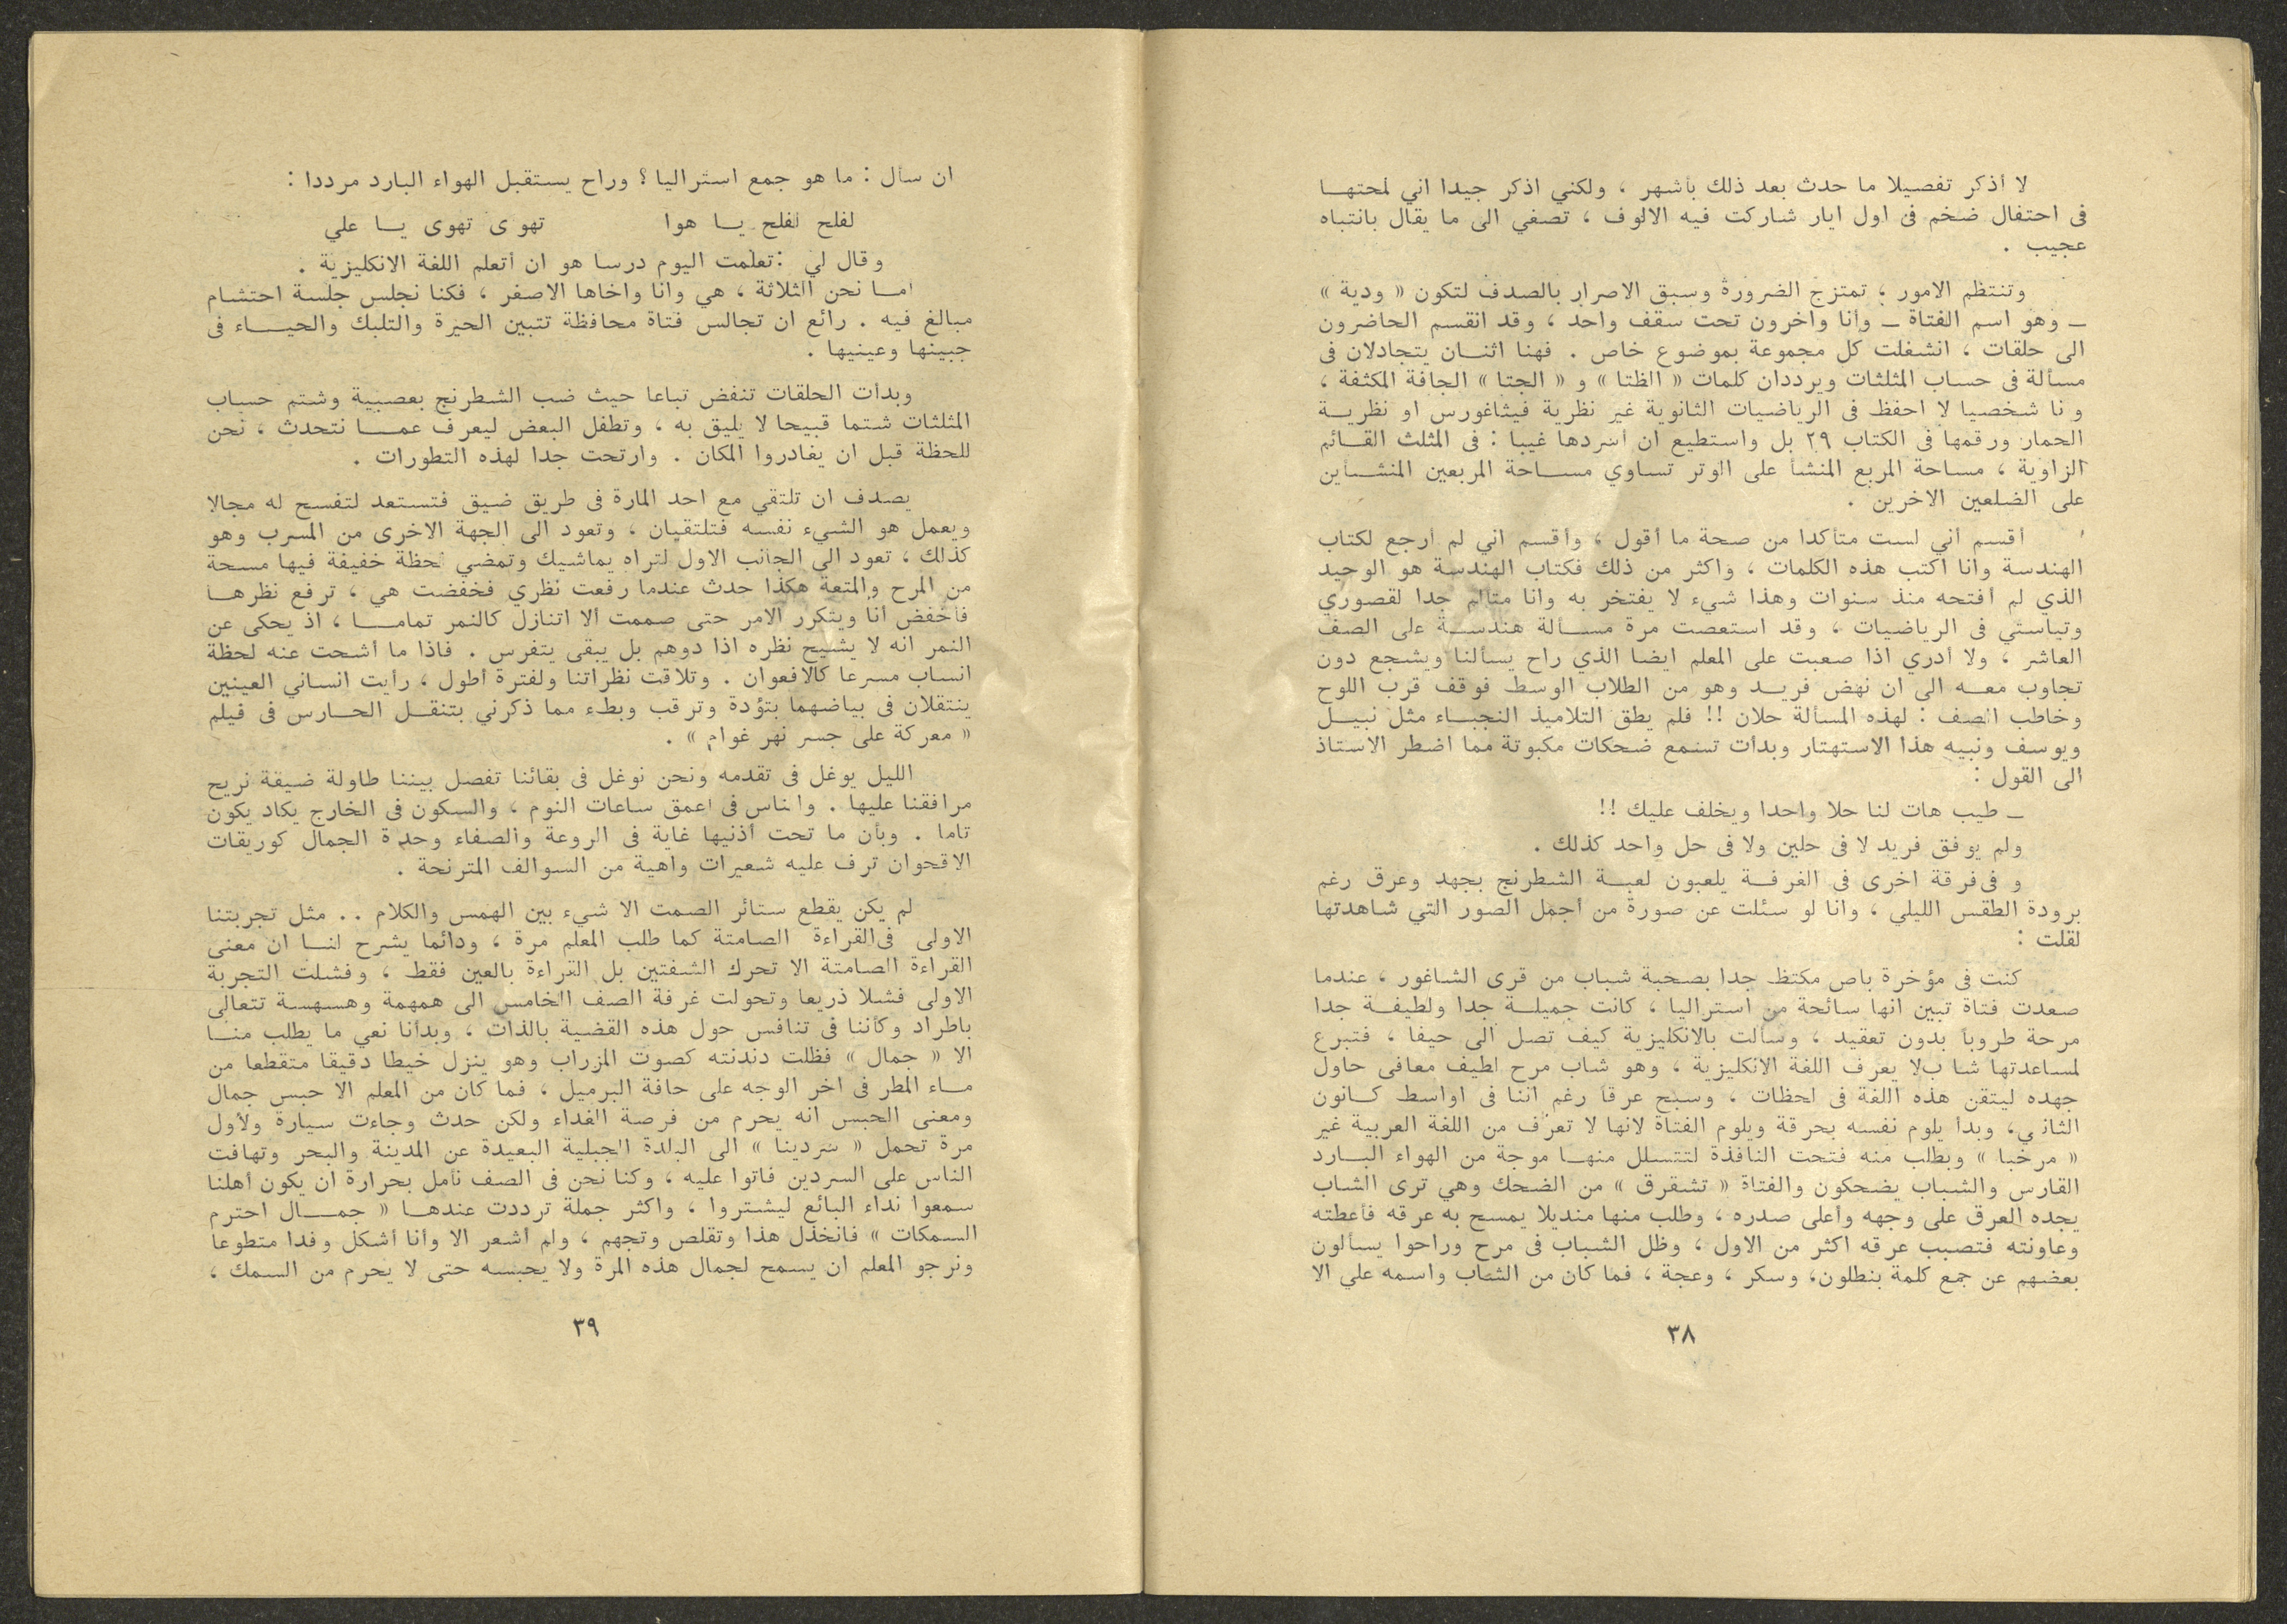 لا أذكر تفصيلا ما حدث بعد ذلك بأشهر ، ولكني اذكر جيدا اني لمحتهـــا
فى احتفال ضخم فى اول ايار شاركت فيه الالوف ، تصغي الى ما يقال بانتباه
عجيب .
وتنتظم الامور ، تمتزج الضرورة وسبق الاصرار بالصدف لتكون « ودية »
ــ وهو اسم الفتاة ــ وأنا واخرون تحت سقف واحد ، وقد انقسم الحاضرون
الى حلقات ، انشغلت كل مجموعة بموضوع خاص . فهنا اثنــان يتجادلان فى
مسألة فى حساب المثلثات ويرددان كلمات « الظتا » و « الجتا » الجافة المكثفة ،
و نا شخصيا لا احفظ فى الرياضيات الثانوية غير نظرية فيثاغورس او نظريــة
الحمار ورقمها فى الكتاب ٢٩ بل واستطيع ان اسردها غيبا : فى المثلث القــائم
الزاوية ، مساحة المربع المنشأ على الوتر تساوي مســاحة المربعين المنشــأين
على الضلعين الاخرين .
أقسم أني لست متأكدا من صحة ما أقول ، وأقسم اني لم أرجع لكتاب
الهندسة وانا اكتب هذه الكلمات ، واكثر من ذلك فكتاب الهندسة هو الوحيد
الذي لم أفتحه منذ سنوات وهذا شيء لا يفتخر به وانا متألم جدا لقصوري
وتياستي فى الرياضيات ، وقد استعصت مرة مســألة هندســة على الصف
العاشر ، ولا أدري اذا صعبت على المعلم ايضا الذي راح يسألنا ويشجع دون
تجاوب معــه الى ان نهض فريــد وهو من الطلاب الوسط فوقف قرب اللوح
وخاطب الصف : لهذه المسألة حلان !! فلم يطق التلاميذ النجبــاء مثل نبيــل
ويوسف ونبيه هذا الاستهتار وبدأت تسمع ضحكات مكبوتة مما اضطر الاستاذ
الى القول :
ــ طيب هات لنا حلا واحدا ويخلف عليك !!
ولم يوفق فريد لا فى حلين ولا فى حل واحد كذلك .
و فى فرقة اخرى فى الغرفــة يلعبون لعبــة الشطرنج بجهد وعرق رغم
برودة الطقس الليلي ، وانا لو سئلت عن صورة من أجمل الصور التي شاهدتها
لقلت :
كنت فى مؤخرة باص مكتظ جدا بصحبة شباب من قرى الشاغور ، عندما
صعدت فتاة تبين انها سائحة من استراليا ، كانت جميلــة جدا ولطيفــة جدا
مرحة طروبا بدون تعقيد ، وسألت بالانكليزية كيف تصل الى حيفا ، فتبرع
لمساعدتها شا بلا يعرف اللغة الانكليزية ، وهو شاب مرح لطيف معافى حاول
جهده ليتقن هذه اللغة فى لحظات ، وسبح عرقا رغم اننا فى اواسط كــانون
الثاني، وبدأ يلوم نفسه بحرقة ويلوم الفتاة لانها لا تعرف من اللغة العربية غير
« مرخبا » وبطلب منه فتحت النافذة لتتسلل منهــا موجة من الهواء البــارد
القارس والشباب يضحكون والفتاة « تشقرق » من الضحك وهي ترى الشاب
يجده العرق على وجهه وأعلى صدره ، وطلب منها منديلا يمسح به عرقه فأعطته
وعاونته فتصبب عرقه اكثر من الاول ، وظل الشباب فى مرح وراحوا يسألون
بعضهم عن جمع كلمة بنطلون، وسكر ، وعجة ، فما كان من الشاب واسمه علي الا
٣٨
ان سأل : ما هو جمع استراليا ؟ وراح يستقبل الهواء البارد مرددا :
لفلح لفلح يــا هوا تهوى تهوى يــا علي
وقال لي :تعلمت اليوم درسا هو ان أتعلم اللغة الانكليزية .
امــا نحن الثلاثة ، هي وانا واخاها الاصغر ، فكنا نجلس جلسة احتشام
مبالغ فيه . رائع ان تجالس فتاة محافظة تتبين الحيرة والتلبك والحيــــاء فى
جبينها وعينيها .
وبدأت الحلقات تنفض تباعا حيث ضب الشطرنج بعصبية وشتم حساب
المثلثات شتما قبيحا لا يليق به ، وتطفل البعض ليعرف عمـــا نتحدث ، نحن
للحظة قبل ان يغادروا المكان . وارتحت جدا لهذه التطورات .
يصدف ان تلتقي مع احد المارة فى طريق ضيق فتستعد لتفسح له مجالا
ويعمل هو الشيء نفسه فتلتقيان ، وتعود الى الجهة الاخرى من المسرب وهو
كذلك ، تعود الى الجانب الاول لتراه يماشيك وتمضي لحظة خفيفة فيها مسحة
من المرح والمتعة هكذا حدث عندما رفعت نظري فخفضت هي ، ترفع نظرهــا
فأخفض أنا ويتكرر الامر حتى صممت ألا اتنازل كالنمر تمامـــا ، اذ يحكى عن
النمر انه لا يشيح نظره اذا دوهم بل يبقى يتفرس . فاذا ما أشحت عنه لحظة
انساب مسرعا كالافعوان . وتلاقت نظراتنا ولفترة أطول ، رأيت انساني العينين
ينتقلان فى بياضهما بتؤدة وترقب وبطء مما ذكرني بتنقــل الحــارس فى فيلم
« معركة على جسر نهر غوام » .
الليل يوغل فى تقدمه ونحن نوغل فى بقائنا تفصل بيننا طاولة ضيقة نريح
مرافقنا عليها . والناس فى اعمق ساعات النوم ، والسكون فى الخارج يكاد يكون
تاما . وبأن ما تحت أذنيها غاية فى الروعة والصفاء وحدة الجمال كوريقات
الاقحوان ترف عليه شعيرات واهية من السوالف المترنحة .
لم يكن يقطع ستائر الصمت الا شيء بين الهمس والكلام .. مثل تجربتنا
الاولى فى القراءة الصامتة كما طلب المعلم مرة ، ودائما يشرح لنــا ان معنى
القراءة الصامتة الا تحرك الشفتين بل القراءة بالعين فقط ، وفشلت التجربة
الاولى فشلا ذريعا وتحولت غرفة الصف الخامس الى همهمة وهسهسة تتعالى
باطراد وكأننا فى تنافس حول هذه القضية بالذات ، وبدأنا نعي ما يطلب منــا
الا « جمال » فظلت دندنته كصوت المزراب وهو ينزل خيطا دقيقا متقطعا من
مــاء المطر فى اخر الوجه على حافة البرميل ، فما كان من المعلم الا حبس جمال
ومعنى الحبس انه يحرم من فرصة الغداء ولكن حدث وجاءت سيارة ولأول
مرة تحمل « سردينا » الى البلدة الجبلية البعيدة عن المدينة والبحر وتهافت
الناس على السردين فاتوا عليه ، وكنا نحن فى الصف نأمل بحرارة ان يكون أهلنا
سمعوا نداء البائع ليشتروا ، واكثر جملة ترددت عندهــا « جمـــال احترم
السمكات » فانخذل هذا وتقلص وتجهم ، ولم أشعر الا وأنا أشكل وفدا متطوعا
ونرجو المعلم ان يسمح لجمال هذه المرة ولا يحبسه حتى لا يحرم من السمك ،
٣٩